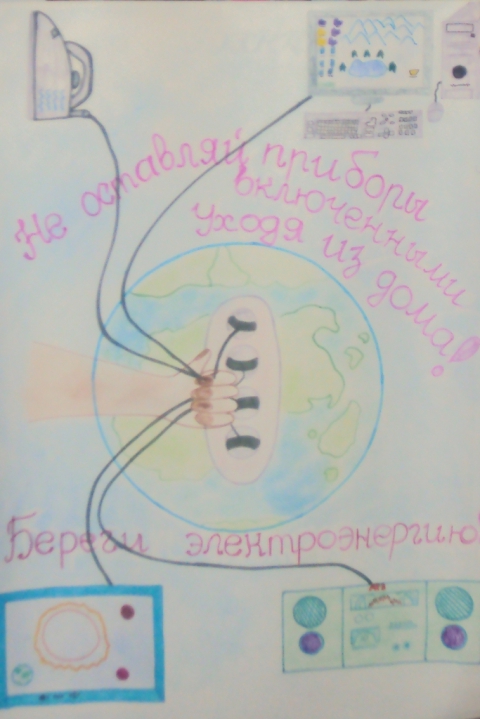 Не оставляй приборы
включенными
уходя из дома!
Береги электроэнергию!